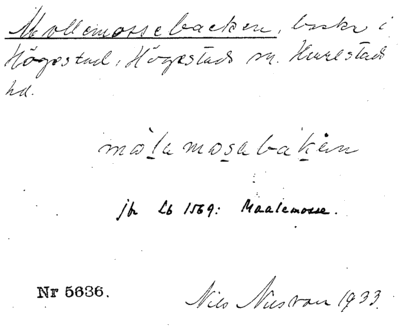 Mollemossebacken, backe i
Högestad, Högestads sn. Herrestads
hd.
målamosabakən
jfr Lb 1569: Maalemosse.
Nr 5636.
Nils 1933.